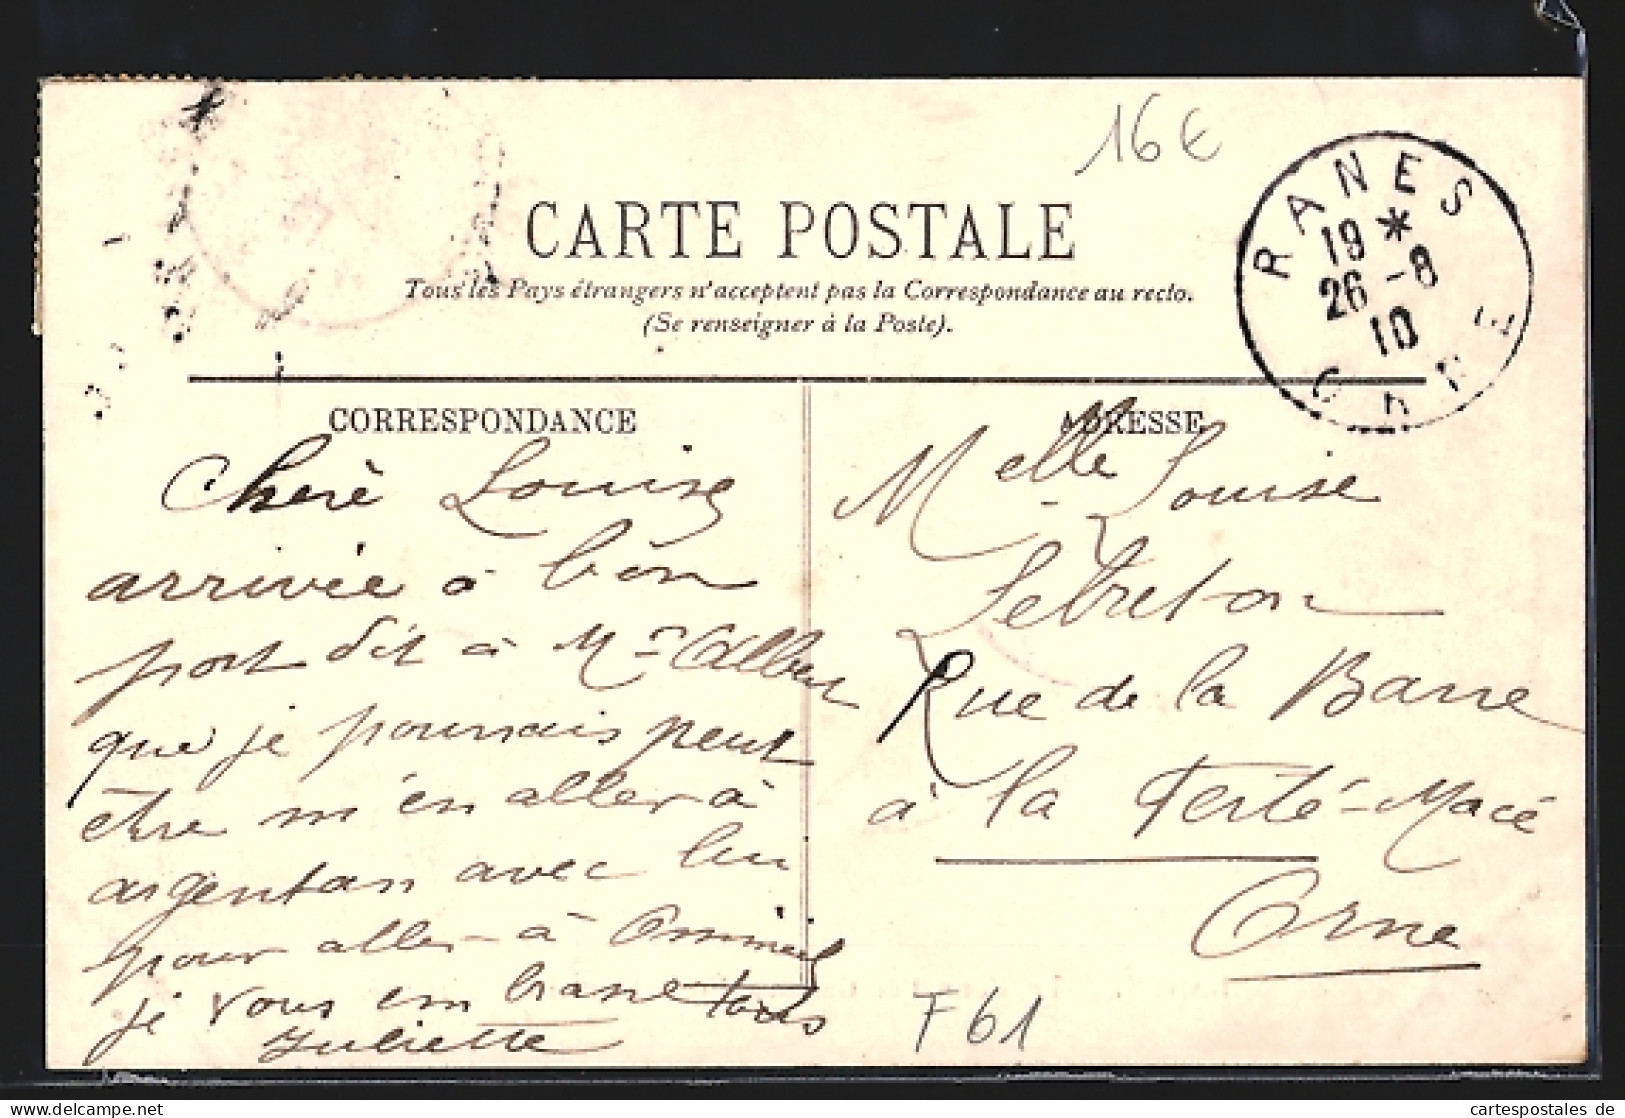 16€
CARTE POSTALE
Tous les Pays étrangers n'acceptent pas la Correspondance au recto.
(Se renseigner à la Poste).
RANES
19 *
26 -8
10
ORNE
CORRESPONDANCE
Cherè Louise
arrivée a bon
port dit à Mr Albert
que je pourrais peut
être m'en aller à
argentan avec lui
pour aller à
je vous embrasse tous
Juliette
ADRESSE
Melle Louise
Lebreton
Rue de la Barre
à la Ferté-Macé
Orne
F61
www.cartespostales.de